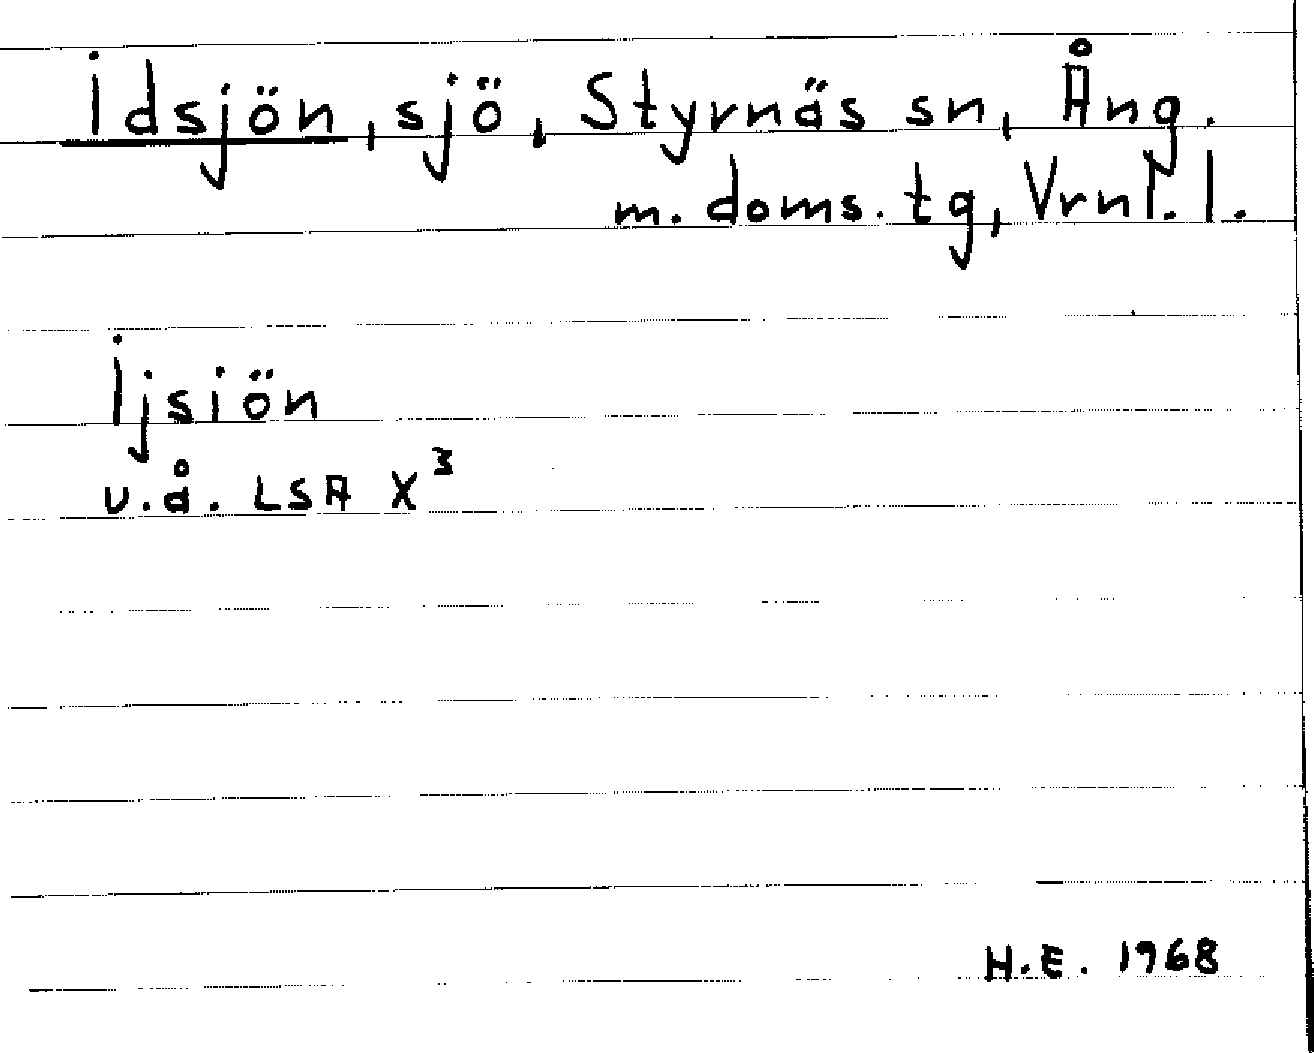 Idsjön, sjö, Styrnäs sn, Ång.
m. doms. tg, Vrnl. l.
Ijsiön
u.å. LSA X³
H.E. 1968